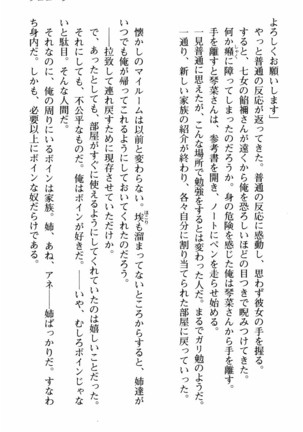 よろしくお願いします」
やっと普通の反応が返ってきた。普通の反応に感動し、思わず彼女の手を握る。
すると、七女の餡禰さんが遠くから俺を恐ろしいほどの目つきで睨みつけてきた。
何か癪に障ってしまったのだろうか。身の危険を感じた俺は琴菜さんから手を離す。
手を離すと琴菜さんは、参考書を開き、ノートにペンを走らせ始める。
一見普通に思えたが、こんな場所で勉強をするとは変わった人だ。まるでガリ勉のようだ。
一通り、新しい家族の紹介が終わり、各々自分に割り当てられた部屋に戻っていった。
懐かしのマイルームは以前と変わらない。埃も溜まってないところからすると、姉達が
いつでも俺が帰ってこれるようにしておいてくれたのだろう。
――拉致して連れ戻すために現存させていただけか。
で、あったとしても、部屋がすぐに使えるようにしてくれていたのは嬉しいことだった。
それにしても、不公平なものだ。俺はボインが好きだ。――いや、むしろボインじゃな
いと駄目。そんな人間だ。
それなのに、俺の周りにいるボインは家族。姉、あね、アネ――姉ばっかりだ。すなわ
ち身内だ。しかも、必要以上にボインな奴だらけである。